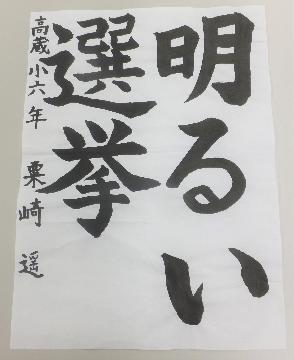 明るい
選挙
高蔵小六年 栗崎 遥